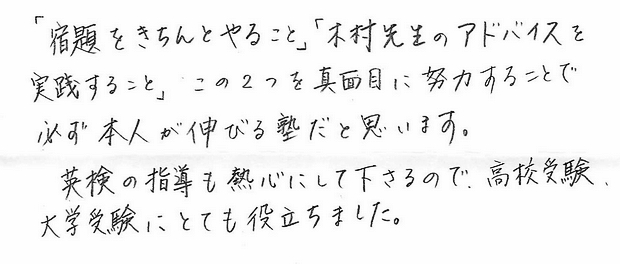 「宿題をきちんとやること」「木村先生のアドバイスを
実践すること」 この２つを真面目に努力することで
必ず本人が伸びる塾だと思います。
英検の指導も熱心にして下さるので、高校受験、
大学受験にとても役立ちました。